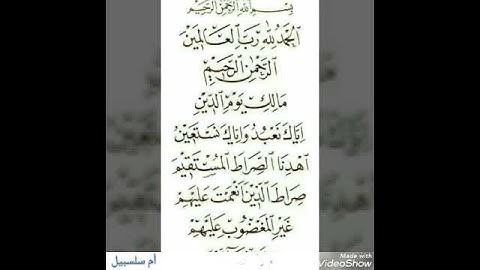 بِسْمِ اللهِ الرَّحْمٰنِ الرَّحِيْمِ
اَلْحَمْدُ لِلّٰهِ رَبِّ الْعَالَمِيْنَ
اَلرَّحْمٰنِ الرَّحِيْمِ
مَالِكِ يَوْمِ الدِّيْنِ
اِيَّاكَ نَعْبُدُ وَاِيَّاكَ نَسْتَعِيْنُ
اِهْدِنَا الصِّرَاطَ الْمُسْتَقِيْمَ
صِرَاطَ الَّذِيْنَ اَنْعَمْتَ عَلَيْهِمْ
غَيْرِ الْمَغْضُوْبِ عَلَيْهِمْ
أم سلسبيل
Made with
VideoShow